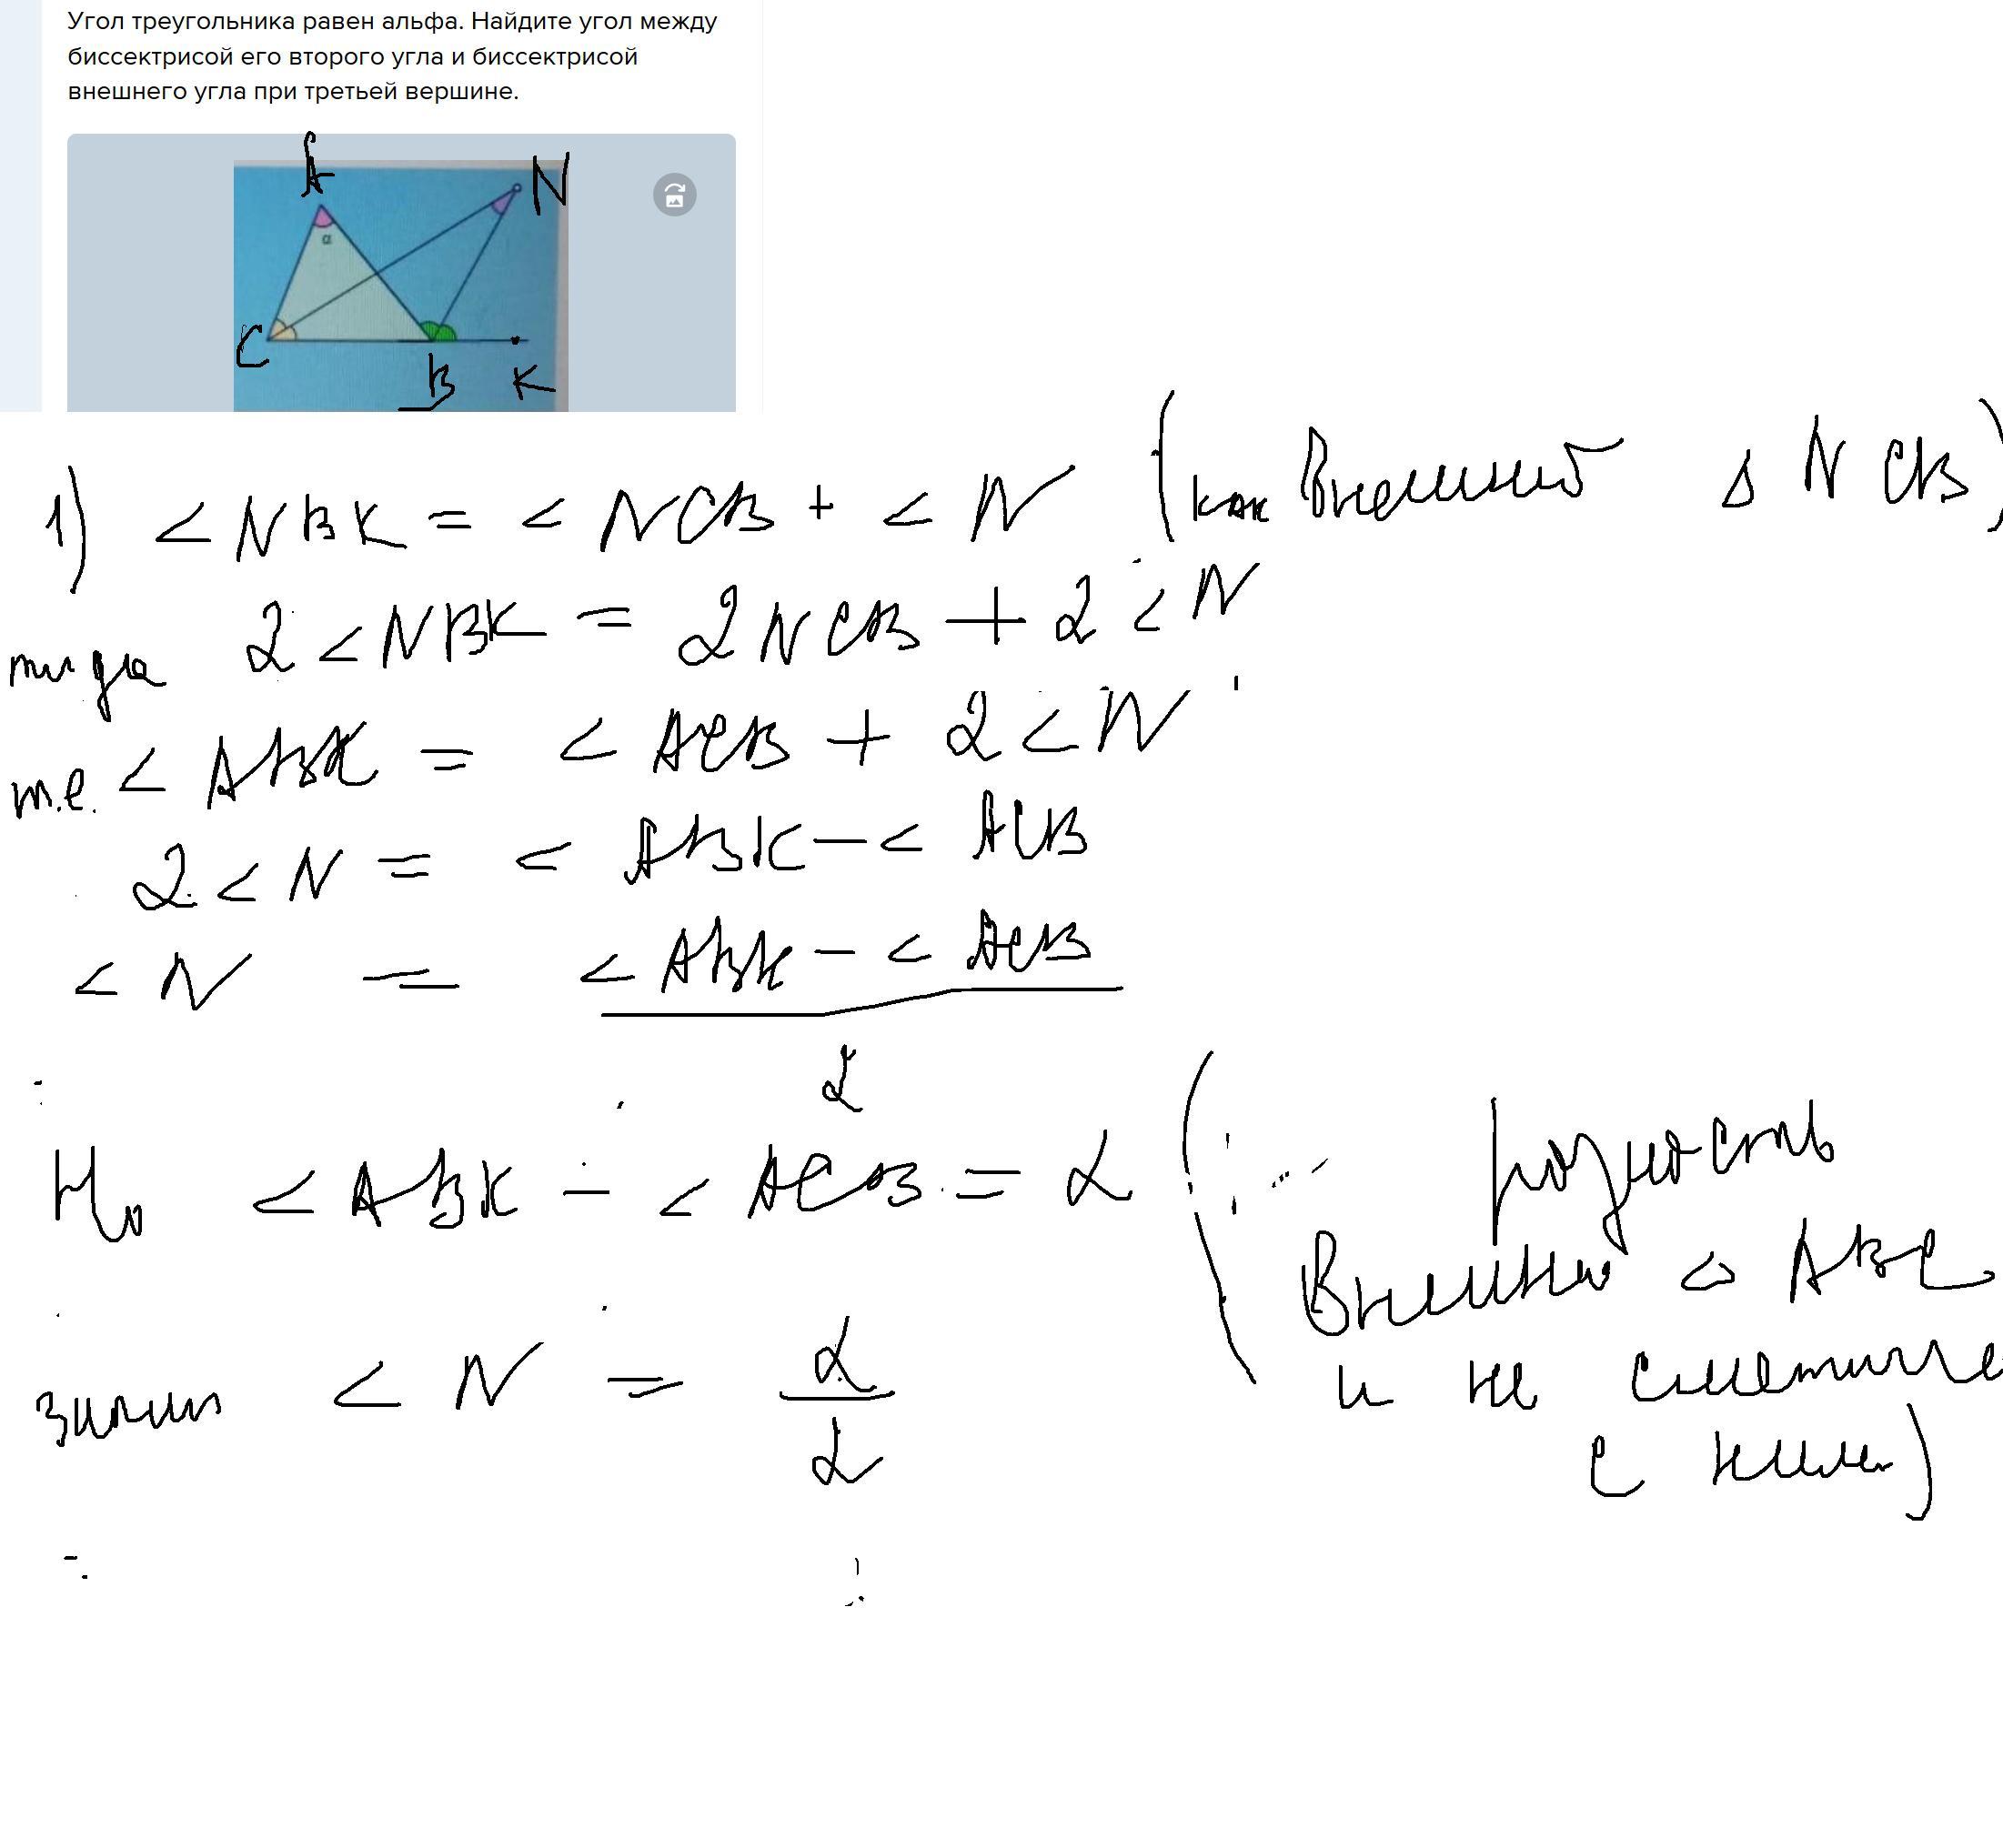 Угол треугольника равен альфа. Найдите угол между
биссектрисой его второго угла и биссектрисой
внешнего угла при третьей вершине.
A
N
α
C
B
K
1) < NBK = < NCB + < N (как внешний Δ NCB)
тогда 2 < NBK = 2 NCB + 2 < N
т.е. < ABK = < ACB + 2 < N
2 < N = < ABK − < ACB
< N = < ABK − < ACB
2
Но < ABK − < ACB = α ( разность
внешнего < ABC
и не смежного
с ним)
значит < N = α
2